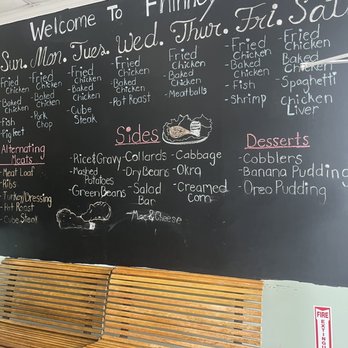 Welcome To Phinney
Sun. Mon. Tues. Wed. Thur. Fri. Sat
Fried Chicken
-Baked Chicken
-Fish
-Pig feet
-Fried Chicken
-Baked Chicken
-Pork Chop
-Fried Chicken
-Baked Chicken
-Cube Steak
-Fried Chicken
-Baked Chicken
-Pot Roast
-Fried Chicken
-Baked Chicken
-Meatballs
-Fried Chicken
-Baked Chicken
-Fish
-Shrimp
-Fried Chicken
Baked Chicken
-Spaghetti
-Chicken Liver
Alternating Meats
-Meat Loaf
-Ribs
-Turkey/Dressing
-Pot Roast
-Cube Steak
Sides
-Rice&Gravy
-Mashed Potatoes
-Green Beans
-Collards
-Dry Beans
-Salad Bar
-Mac&Cheese
-Cabbage
-Okra
-Creamed Corn
Desserts
-Cobblers
-Banana Pudding
-Oreo Pudding
FIRE
EXTINGUI